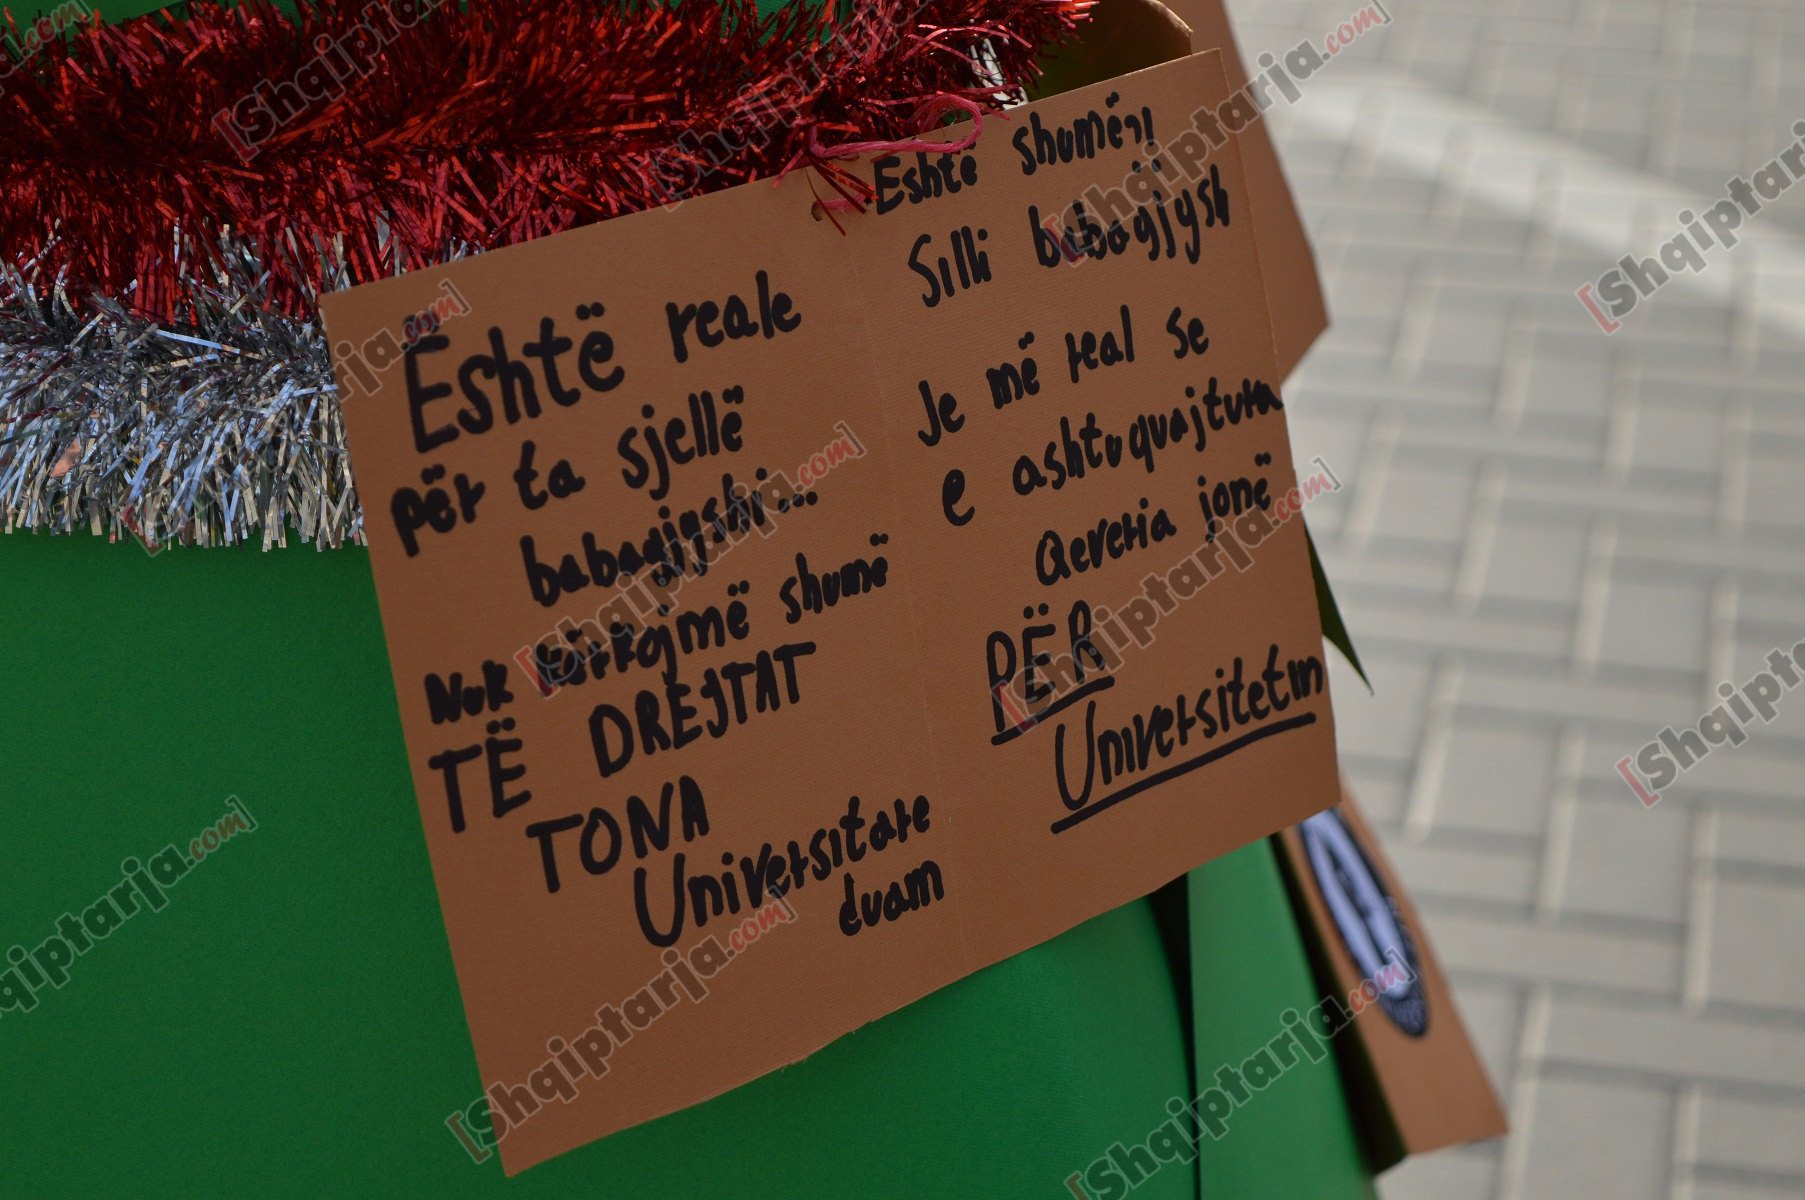 Është reale
për ta sjellë
babagjyshi...
Nuk kërkojmë shumë
TË DREJTAT
TONA
Universitare
duam
Eshtë shumë?!
Silli babagjysh
Je më real se
e ashtuquajtura
Qeveria jonë
PËR
Universitetin
[Shqiptarja.com]